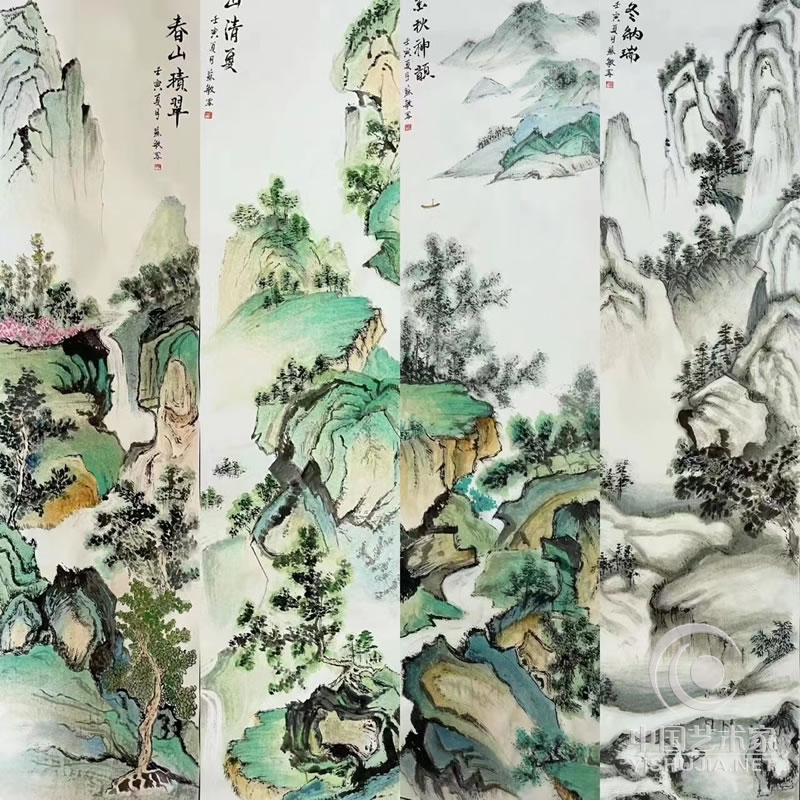 春山積翠
壬寅夏月蘇敏写
山清夏
壬寅夏月蘇敏写
秋神韻
壬寅夏月蘇敏写
冬納瑞
壬寅夏月蘇敏写
中国艺术家
YISHUJIA.NET